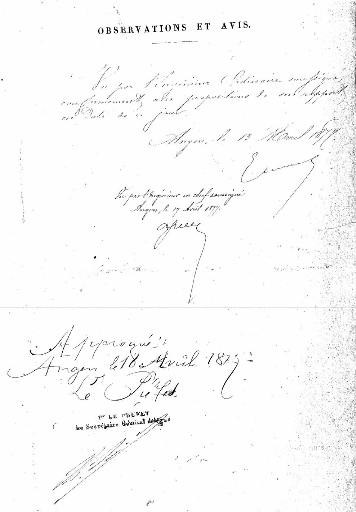 OBSERVATIONS ET AVIS.
Vu par l'Ingénieur Ordinaire soussigné,
conformément aux propositions de son rapport
en date de ce jour
Angers, le 13 Avril 1877.
Vu par l'Ingénieur en chef soussigné
Angers, le 17 Avril 1877.
Approuvé:
Angers le 18 Avril 187
Le Préfet
Pr LE PRÉFET
Le Secrétaire Général délégué